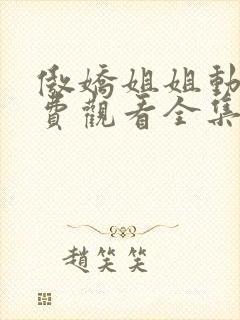 傲嬌姐姐動
費觀看全集
趙笑笑